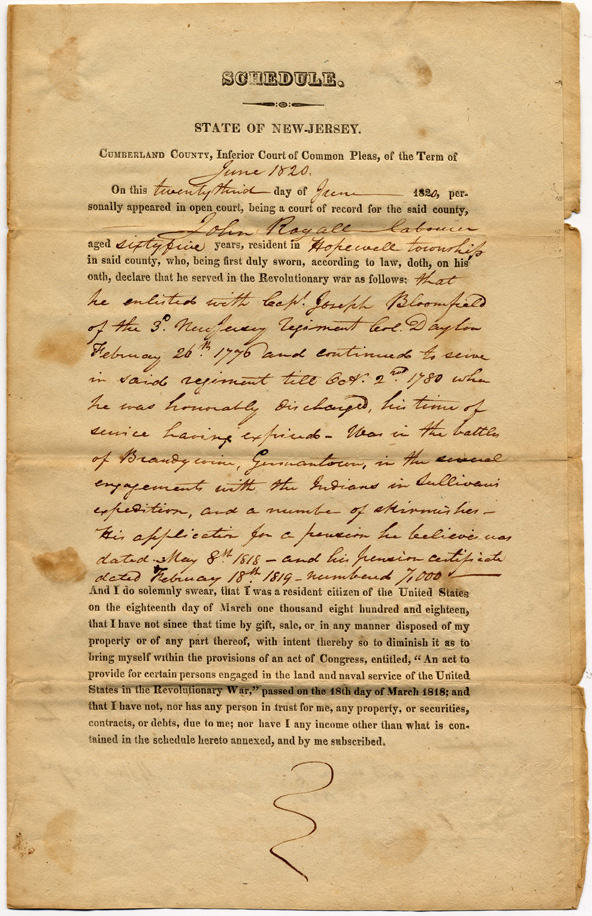 SCHEDULE.
STATE OF NEW-JERSEY.
CUMBERLAND COUNTY, Inferior Court of Common Pleas, of the Term of
June 1820.
On this twenty third day of June 1820, per-
sonally appeared in open court, being a court of record for the said county,
John Royall labourer
aged sixty five years, resident in Hopewell township
in said county, who, being first duly sworn, according to law, doth, on his
oath, declare that he served in the Revolutionary war as follows: that
he enlisted with Capt. Joseph Bloomfield
of the 3d. New Jersey regiment Col. Dayton
February 26th. 1776 and continued to serve
in said regiment till Oct. 2nd 1780 when
he was honorably discharged, his time of
service having expired - Was in the battles
of Brandywine, Germantown, in the several
engagements with the Indians in Sullivans
expedition, and a number of skirmishes -
His application for a pension he believes was
dated May 8th 1818 - and his pension certificate
dated February 18th 1819 - numbered 7,000
And I do solemnly swear, that I was a resident citizen of the United States
on the eighteenth day of March one thousand eight hundred and eighteen,
that I have not since that time by gift, sale, or in any manner disposed of my
property or of any part thereof, with intent thereby so to diminish it as to
bring myself within the provisions of an act of Congress, entitled, "An act to
provide for certain persons engaged in the land and naval service of the United
States in the Revolutionary War," passed on the 18th day of March 1818; and
that I have not, nor has any person in trust for me, any property, or securities,
contracts, or debts, due to me; nor have I any income other than what is con-
tained in the schedule hereto annexed, and by me subscribed.